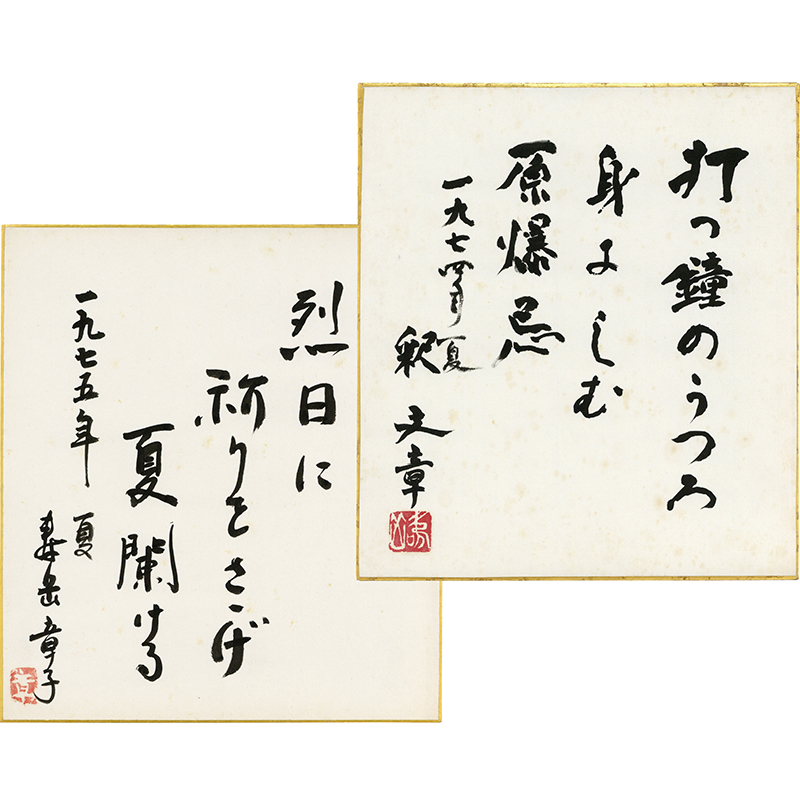 打つ鐘のうつろ
身にしむ
原爆忌
一九七四年夏
釈 文章
烈日に
祈りをさゝげ
夏闌ける
一九七五年 夏
寿岳章子